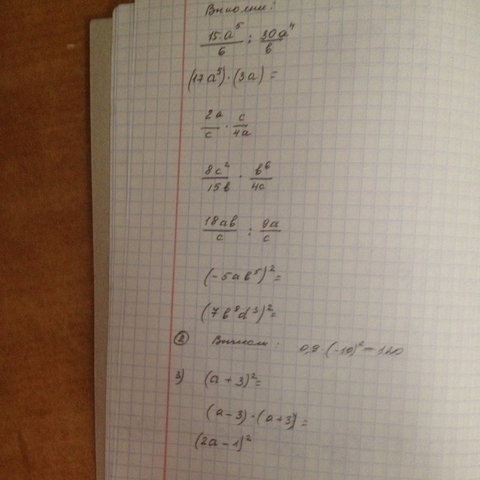 Выполни:
15a⁵/б : 30a⁴/в
(17a³)·(3a) =
2a/c · c/4a
8c²/15в · в⁶/4c
18aв/c : 9a/c
(-5aв⁵)²=
(7в⁸d³)²=
② Вычисли: 0,8·(-10)²-120
3) (a+3)²=
(a-3)·(a+3)=
(2a-1)²